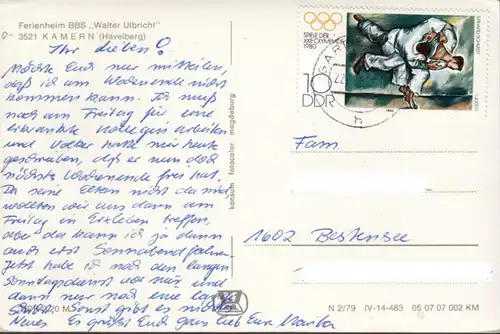 Ferienheim BBS „Walter Ulbricht"
3521 KAMERN (Havelberg)
Ihr Lieben!
Möchte Euch nur mitteilen,
daß ich am Wochenende nicht
kommen kann. Ich muß
noch am Freitag für eine
erkrankte Kollegin arbeiten
und Volker hatte mir heute
geschrieben, daß er nun doch
nächstes Wochenende frei hat.
Da seine Eltern nicht da sind
wollten wir uns dann am
Freitag in Erxleben treffen,
aber da kann ich ja dann
auch erst Sonnabend fahren.
Jetzt habe ich noch den langen
Sonntagsdienst vor mir und
dann nur noch eine lange
Sonst gibt es nichts
Neues. Es grüßt Euch ganz lieb Eure Marika
konsum fotocolor magdeburg
SPIELE DER
XXII. OLYMPIADE
1980
10
DDR
Fam
1602 Bestensee
N 2/79 IV-14-483 05 07 07 002 KM